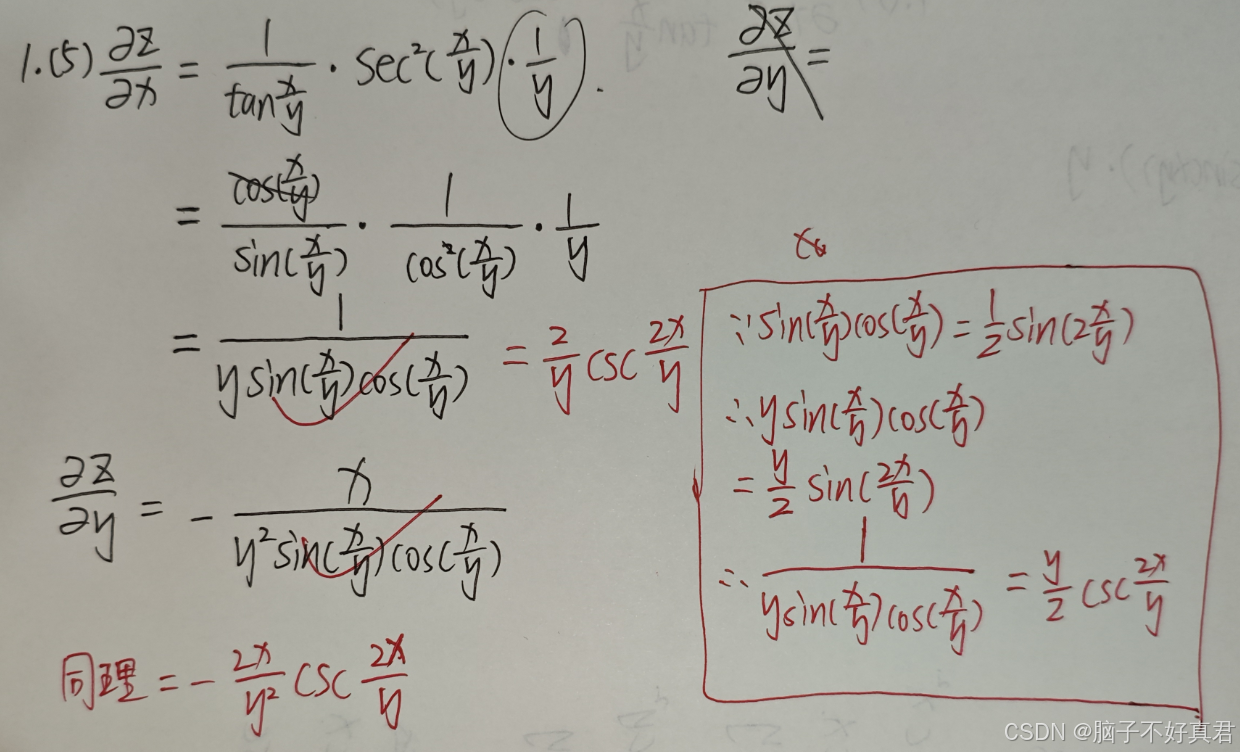 1.(5) ∂z/∂x = 1/tan(x/y) · sec²(x/y) · 1/y .
∂z/∂y =
= cos(x/y)/sin(x/y) · 1/cos²(x/y) · 1/y
= 1/(y sin(x/y) cos(x/y)) = 2/y csc 2x/y
∂z/∂y = - x/(y² sin(x/y) cos(x/y))
同理 = - 2x/y² csc 2x/y
∵ sin(x/y) cos(x/y) = 1/2 sin(2 x/y)
∴ y sin(x/y) cos(x/y)
= y/2 sin(2x/y)
∴ 1/(y sin(x/y) cos(x/y)) = y/2 csc 2x/y
CSDN @脑子不好真君